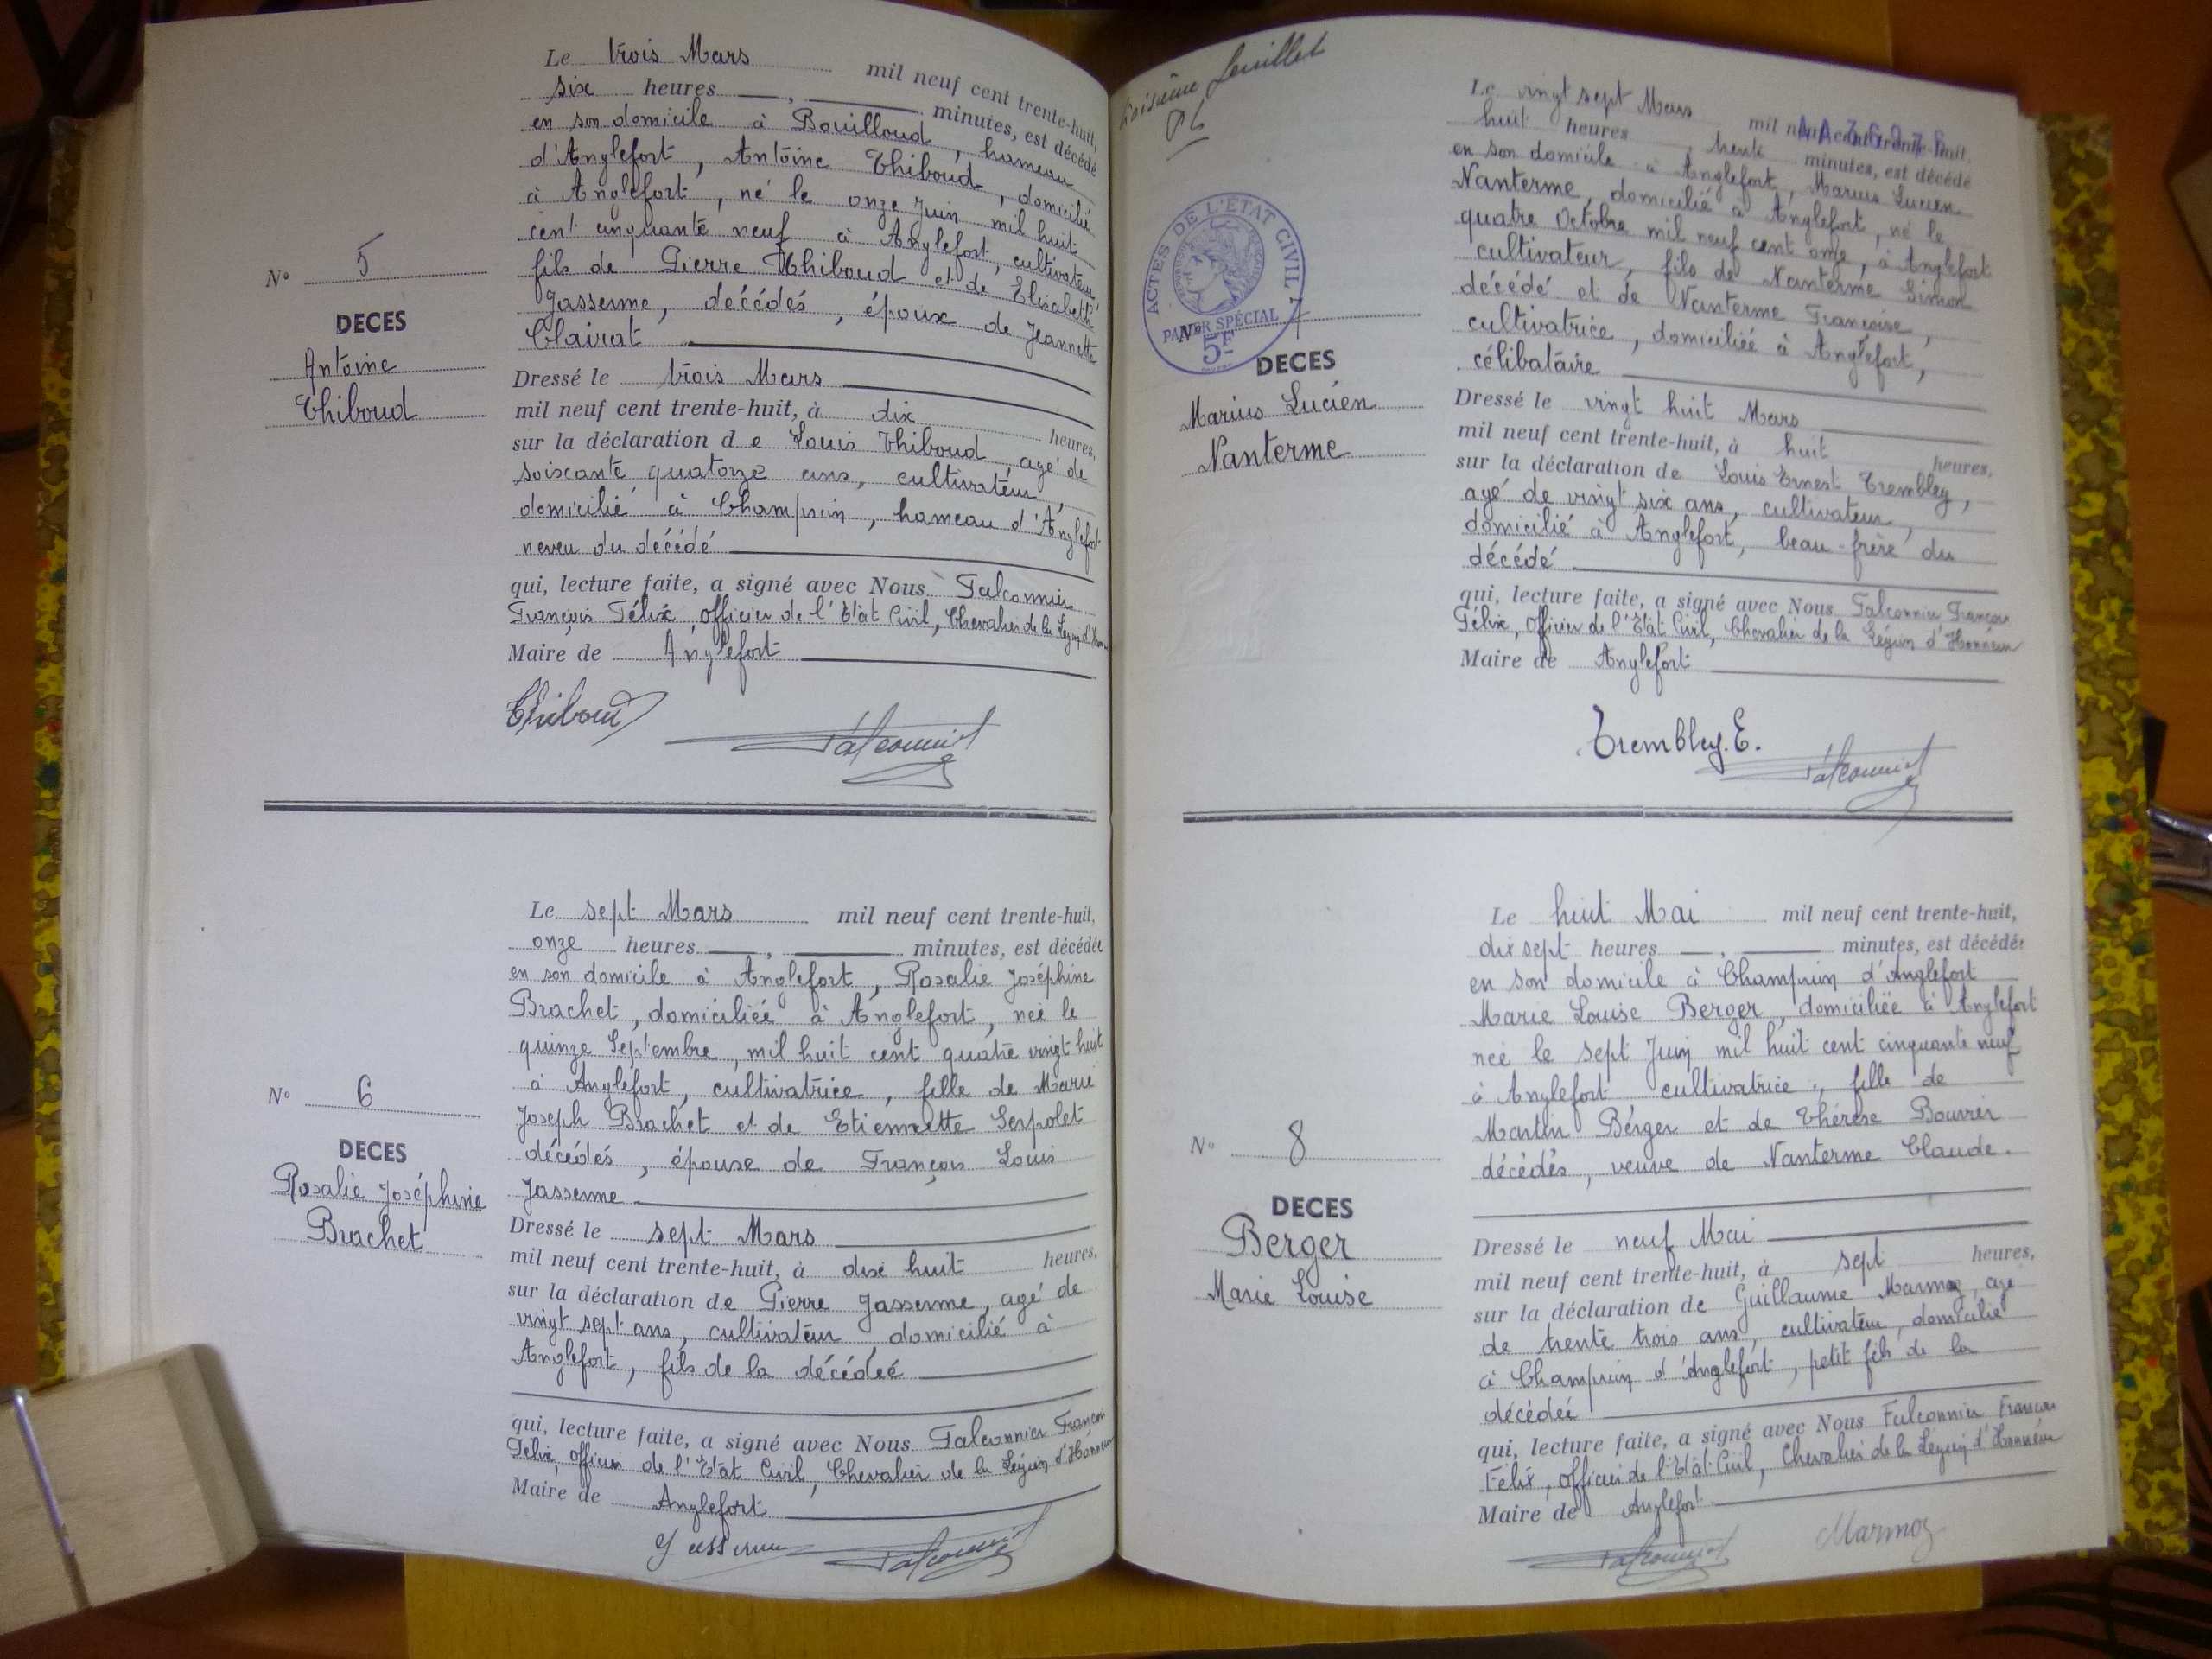 Le trois Mars mil neuf cent trente-huit,
six heures , minutes, est décédé
en son domicile à Bouilloud, hameau
d'Anglefort, Antoine Thiboud, domicilié
à Anglefort, né le onze Juin mil huit
cent cinquante neuf à Anglefort, cultivateur,
fils de Pierre Thiboud et de Elisabeth
Jasserme, décédés, époux de Jeannette
Clairat
N° 5
DECES
Antoine
Thiboud
Dressé le trois Mars
mil neuf cent trente-huit, à dix heures,
sur la déclaration de Louis Thiboud, agé de
soixante quatorze ans, cultivateur,
domicilié à Champrin, hameau d'Anglefort
neveu du décédé
qui, lecture faite, a signé avec Nous Falconnier
François Félix, officier de l'Etat Civil, Chevalier de la Légion d'Hon
Maire de Anglefort
Thiboud Falconnier
Le sept Mars mil neuf cent trente-huit,
onze heures , minutes, est décédée
en son domicile à Anglefort, Rosalie Joséphine
Brachet, domiciliée à Anglefort, née le
quinze Septembre, mil huit cent quatre vingt huit
à Anglefort, cultivatrice, fille de Marie
Joseph Brachet et de Etiennette Serpolet
décédés, épouse de François Louis
Jasserme
N° 6
DECES
Rosalie Joséphine
Brachet
Dressé le sept Mars
mil neuf cent trente-huit, à dix huit heures,
sur la déclaration de Pierre Jasserme, agé de
vingt sept ans, cultivateur domicilié à
Anglefort, fils de la décédée
qui, lecture faite, a signé avec Nous Falconnier François
Félix, officier de l'Etat Civil, Chevalier de la Légion d'Honneur
Maire de Anglefort
Jasserme Falconnier
troisième feuillet
ACTES DE L'ETAT CIVIL
PAPIER SPÉCIAL
5F
Le vingt sept Mars mil neuf cent trente-huit,
huit heures , trente minutes, est décédé
en son domicile à Anglefort, Marius Lucien
Nanterme, domicilié à Anglefort, né le
quatre Octobre mil neuf cent onze, à Anglefort
cultivateur, fils de Nanterme Simon
décédé et de Nanterme Françoise,
cultivatrice, domiciliée à Anglefort,
célibataire
N° 7
DECES
Marius Lucien
Nanterme
Dressé le vingt huit Mars
mil neuf cent trente-huit, à huit heures,
sur la déclaration de Louis Ernest Trembley,
agé de vingt six ans, cultivateur,
domicilié à Anglefort, beau-frère du
décédé
qui, lecture faite, a signé avec Nous Falconnier François
Félix, officier de l'Etat Civil, Chevalier de la Légion d'Honneur
Maire de Anglefort
Trembley. E. Falconnier
Le huit Mai mil neuf cent trente-huit,
dix sept heures , minutes, est décédée
en son domicile à Champrin d'Anglefort
Marie Louise Berger, domiciliée à Anglefort
née le sept Juin mil huit cent cinquante neuf
à Anglefort cultivatrice, fille de
Martin Berger et de Thérèse Bouvier
décédés, veuve de Nanterme Claude.
N° 8
DECES
Berger
Marie Louise
Dressé le neuf Mai
mil neuf cent trente-huit, à sept heures,
sur la déclaration de Guillaume Marmoz, agé
de trente trois ans, cultivateur, domicilié
à Champrin d'Anglefort, petit fils de la
décédée
qui, lecture faite, a signé avec Nous Falconnier François
Félix, officier de l'Etat Civil, Chevalier de la Légion d'Honneur
Maire de Anglefort
Falconnier Marmoz